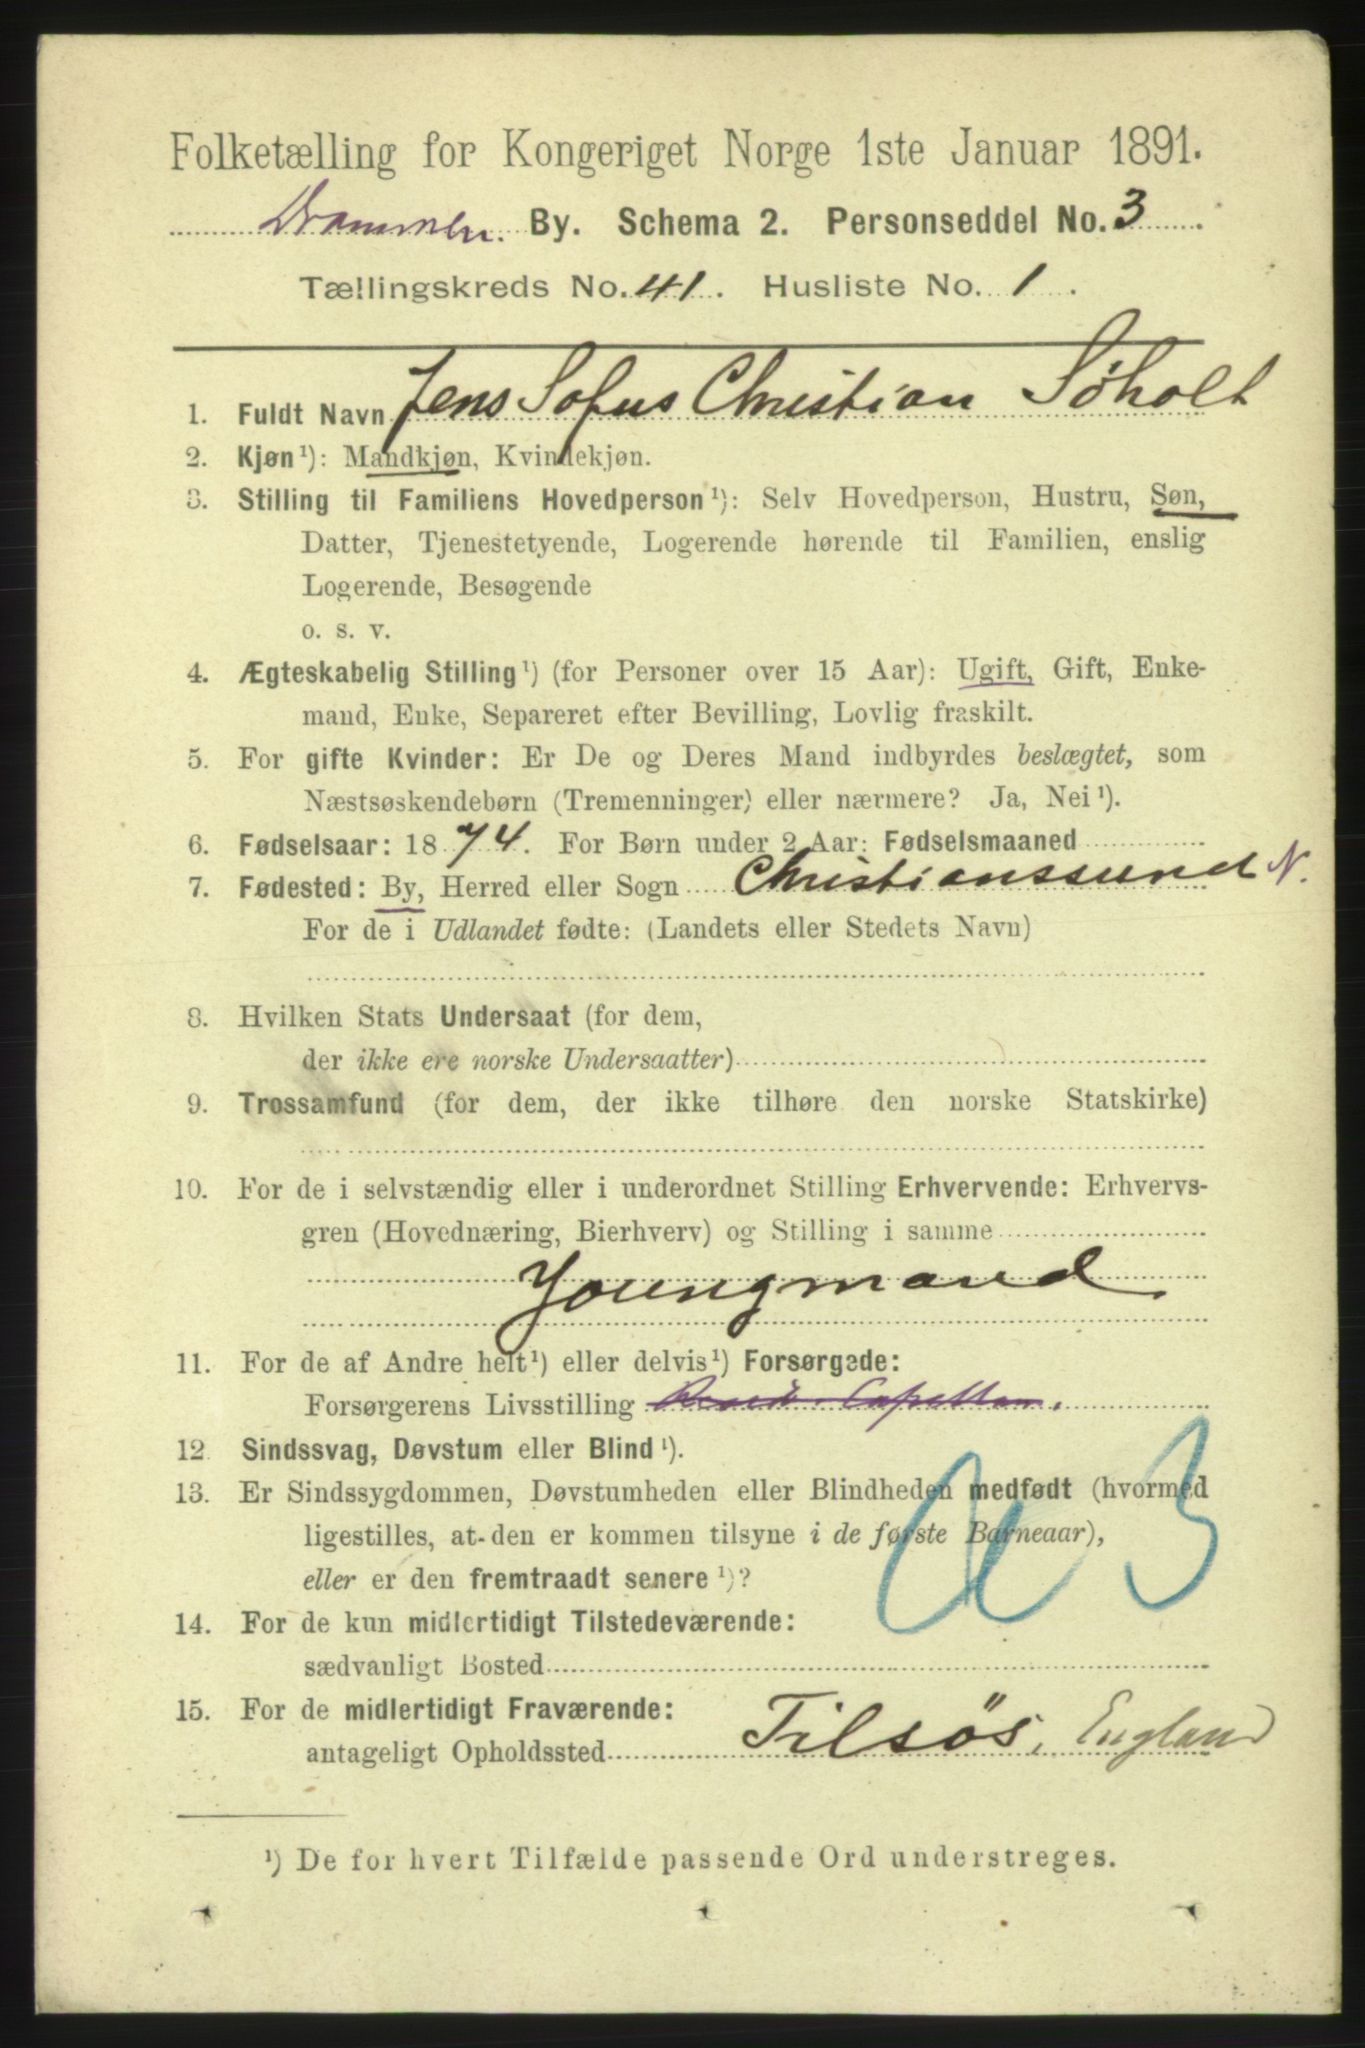 Folketælling for Kongeriget Norge 1ste Januar 1891.
Drammen. By. Schema 2. Personseddel No. 3
Tællingskreds No. 41. Husliste No. 1.
1. Fuldt Navn Jens Sofus Christian Søholt
2. Kjøn¹): Mandkjøn, Kvindekjøn.
3. Stilling til Familiens Hovedperson¹): Selv Hovedperson, Hustru, Søn,
Datter, Tjenestetyende, Logerende hørende til Familien, enslig
Logerende, Besøgende
o. s. v.
4. Ægteskabelig Stilling¹) (for Personer over 15 Aar): Ugift, Gift, Enke-
mand, Enke, Separeret efter Bevilling, Lovlig fraskilt.
5. For gifte Kvinder: Er De og Deres Mand indbyrdes beslægtet, som
Næstsøskendebørn (Tremenninger) eller nærmere? Ja, Nei¹).
6. Fødselsaar: 1874. For Børn under 2 Aar: Fødselsmaaned
7. Fødested: By, Herred eller Sogn Christianssund N.
For de i Udlandet fødte: (Landets eller Stedets Navn)
8. Hvilken Stats Undersaat (for dem,
der ikke ere norske Undersaatter)
9. Trossamfund (for dem, der ikke tilhøre den norske Statskirke)
10. For de i selvstændig eller i underordnet Stilling Erhvervende: Erhvervs-
gren (Hovednæring, Bierhverv) og Stilling i samme
Youngmand.
11. For de af Andre helt¹) eller delvis¹) Forsørgede:
Forsørgerens Livsstilling Capellan.
12 Sindssvag, Døvstum eller Blind¹).
13. Er Sindssygdommen, Døvstumheden eller Blindheden medfødt (hvormed
ligestilles, at den er kommen tilsyne i de første Barneaar),
eller er den fremtraadt senere¹)?
14. For de kun midlertidigt Tilstedeværende:
sædvanligt Bosted
15. For de midlertidigt Fraværende:
antageligt Opholdssted Tilsøs. England
¹) De for hvert Tilfælde passende Ord understreges.